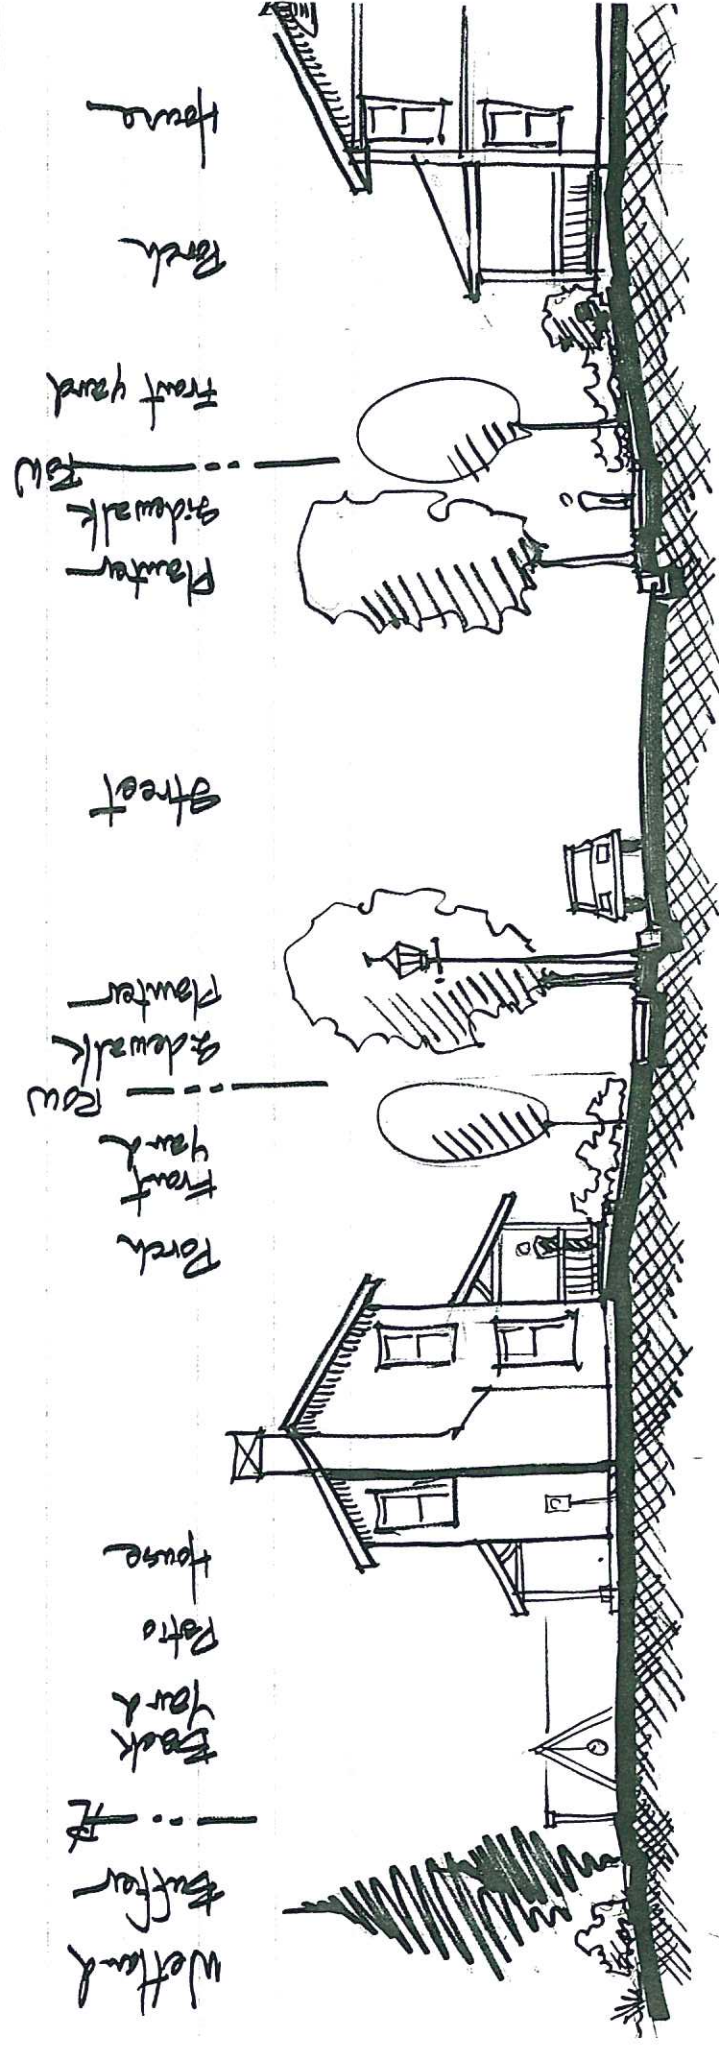 Wetland
Buffer
PL
Back
Yard
Patio
House
Porch
Front
Yard
ROW
Sidewalk
Planter
Street
Planter
Sidewalk
ROW
Front yard
Porch
House